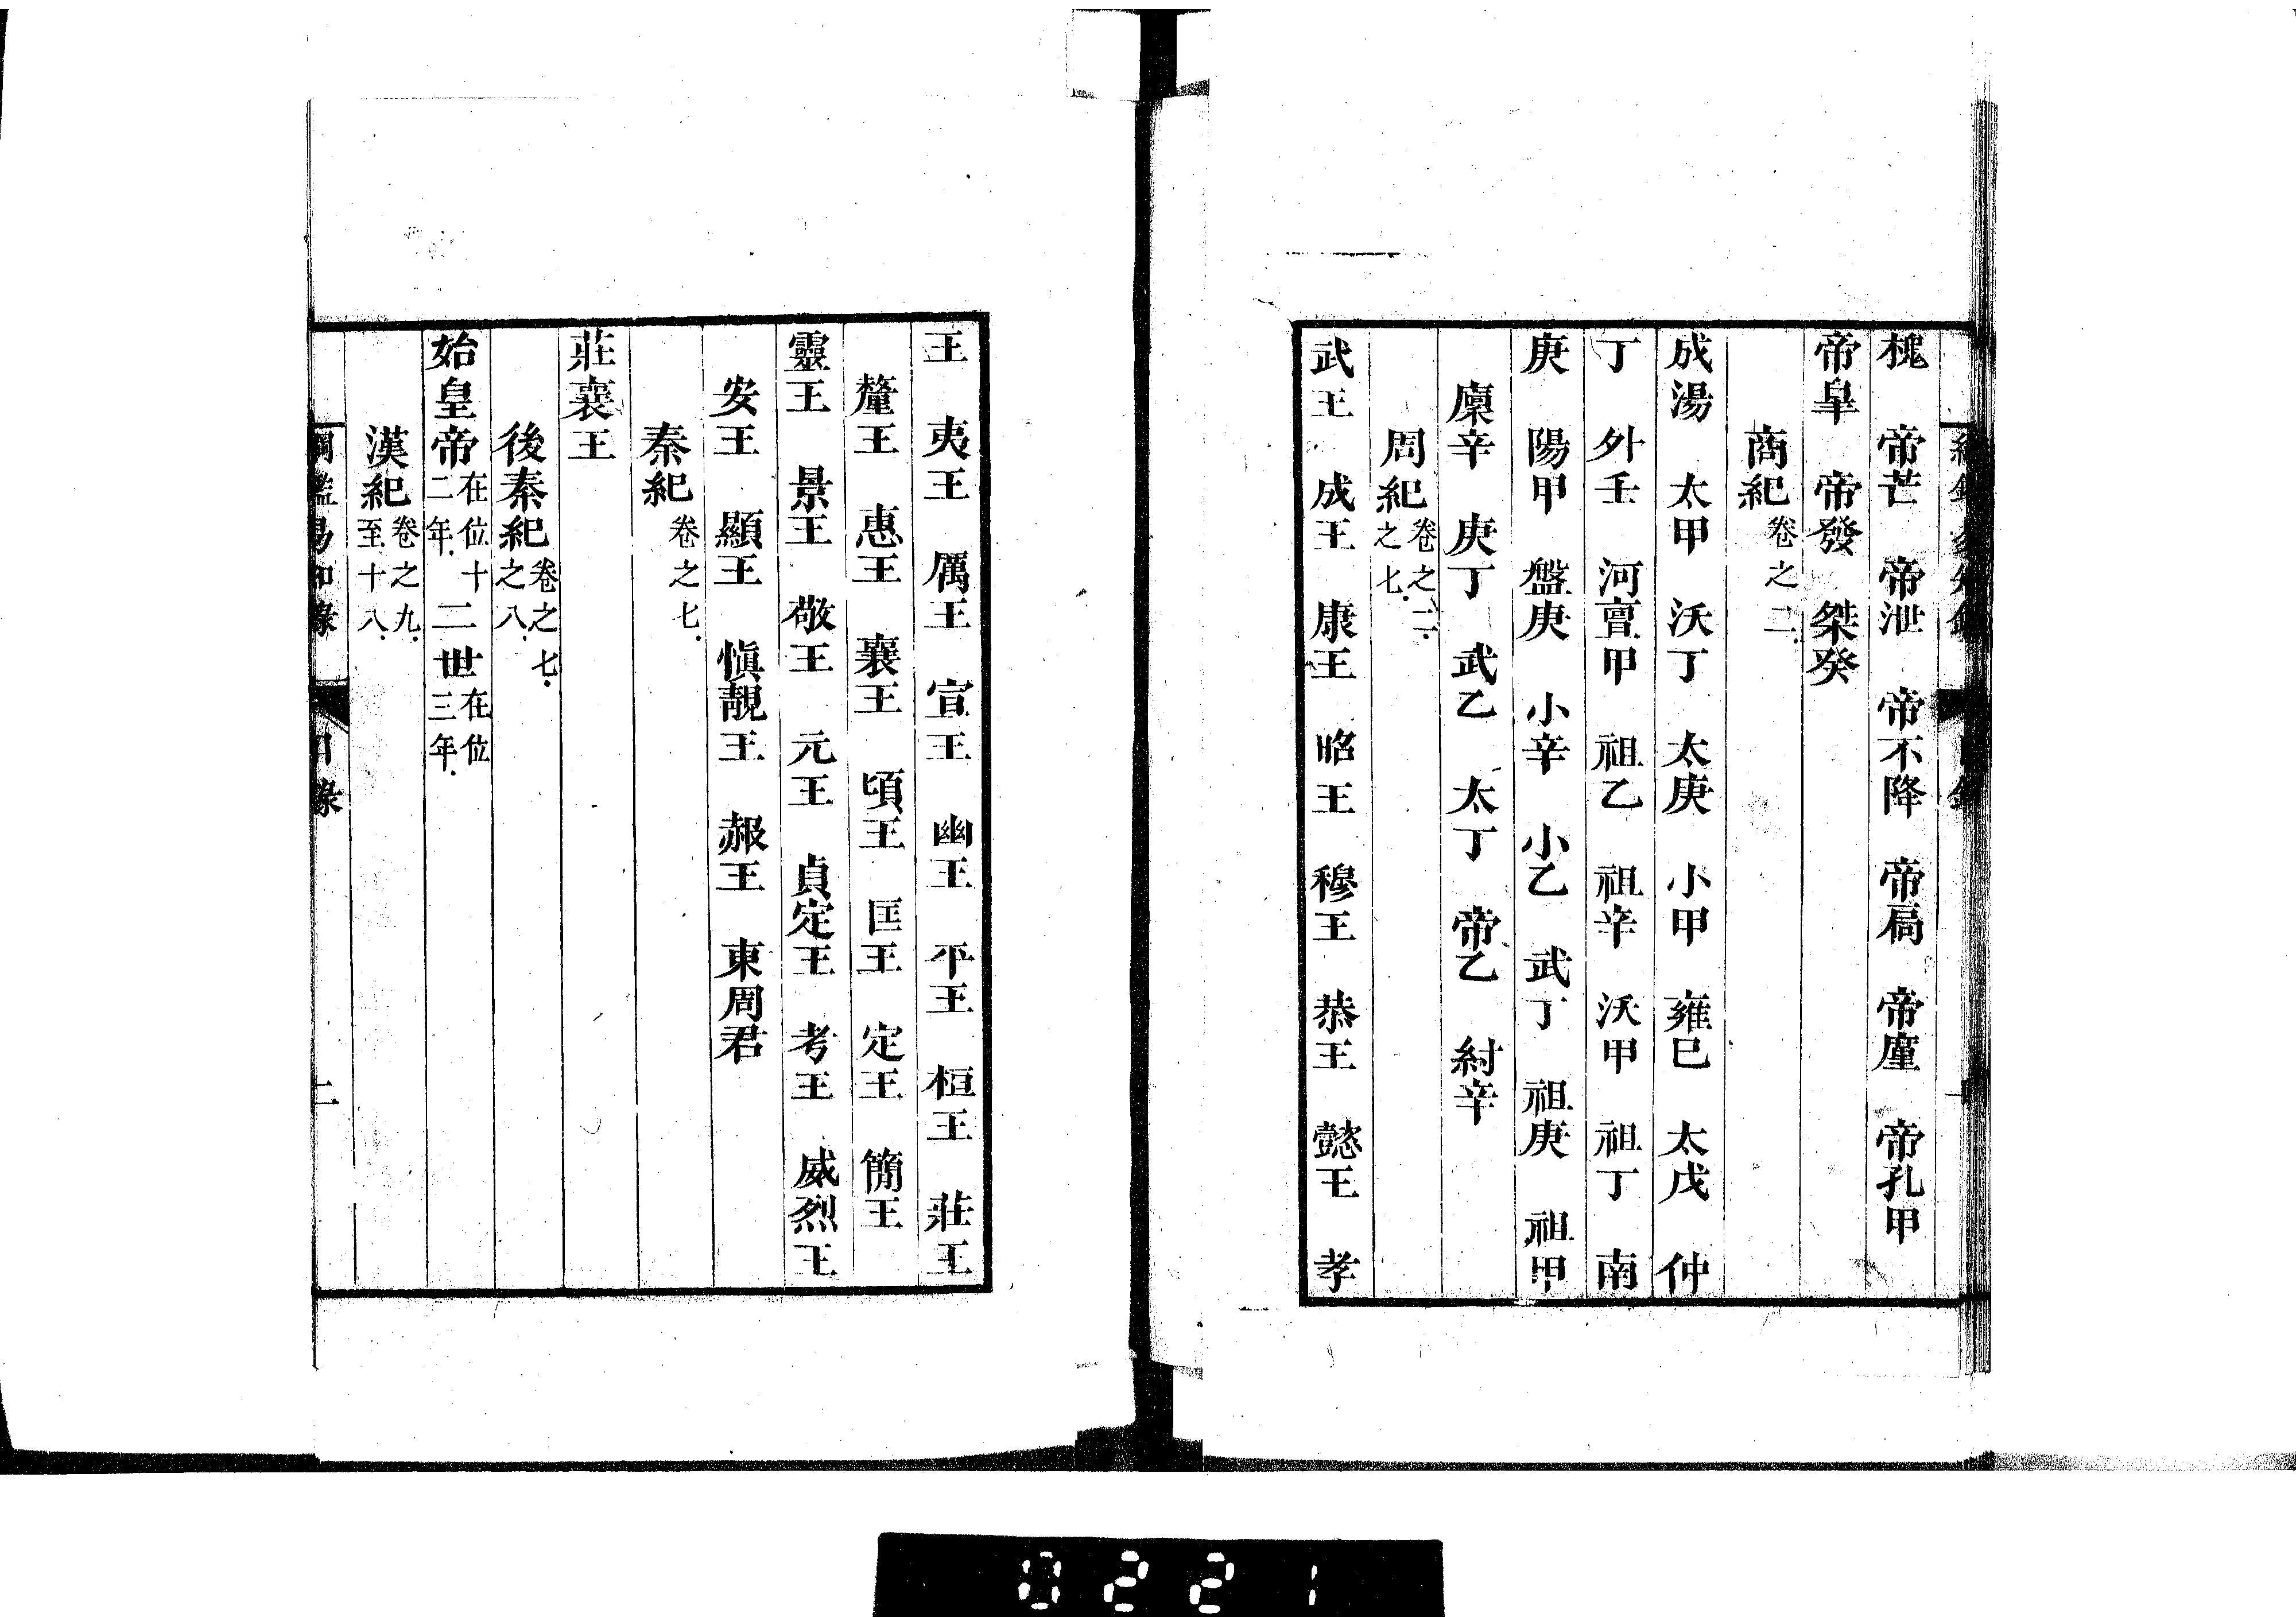 槐　帝芒　帝泄　帝不降　帝扃　帝廑　帝孔甲
帝皐　帝發　桀癸
商紀卷之二
成湯　太甲　沃丁　太庚　小甲　雍巳　太戊　仲
丁　外壬　河亶甲　祖乙　祖辛　沃甲　祖丁　南
庚　陽甲　盤庚　小辛　小乙　武丁　祖庚　祖甲
廩辛　庚丁　武乙　太丁　帝乙　紂辛
周紀卷之二之七
武王　成王　康王　昭王　穆王　恭王　懿王　孝
王　夷王　厲王　宣王　幽王　平王　桓王　莊王
釐王　惠王　襄王　頃王　匡王　定王　簡王
靈王　景王　敬王　元王　貞定王　考王　威烈王
安王　顯王　愼靚王　赧王　東周君
秦紀卷之七
莊襄王
後秦紀卷之七之八
始皇帝在位十二年　二世在位三年
漢紀卷之九至十八
綱鑑易知錄　目錄　二
0221